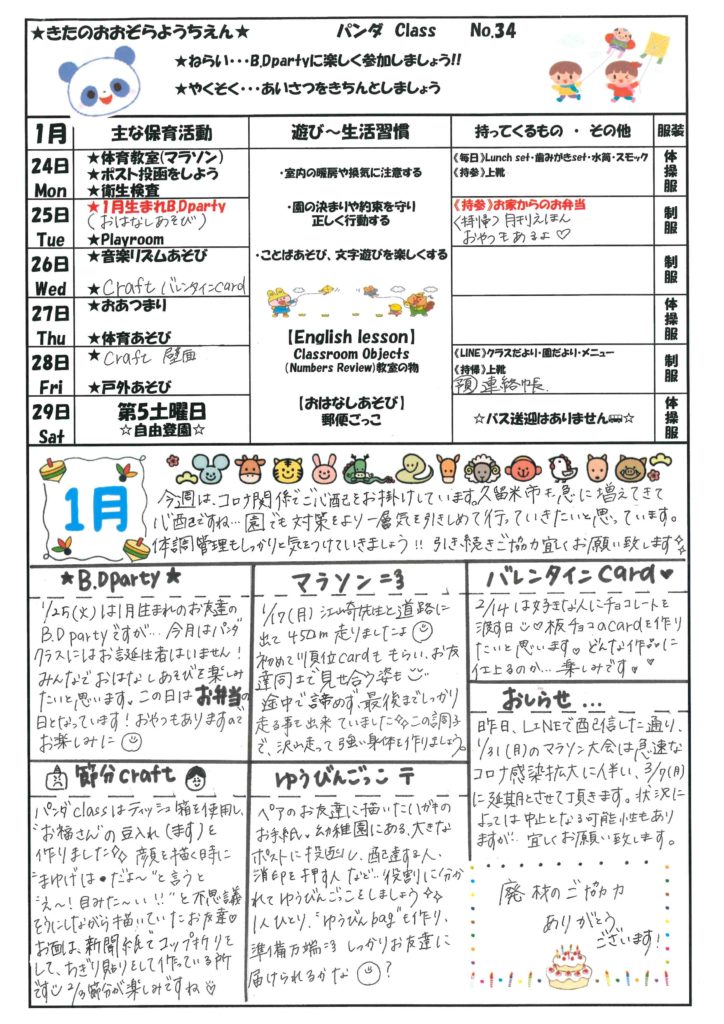 ★きたのおおぞらようちえん★
パンダ Class No.34
★ねらい・・・B.Dpartyに楽しく参加しましょう!!
★やくそく・・・あいさつをきちんとしましょう
1月 主な保育活動 遊び～生活習慣 持ってくるもの ・ その他 服装
24日 Mon
★体育教室(マラソン)
★ポスト投函をしよう
★衛生検査
《毎日》Lunch set・歯みがきset・水筒・スモック
《持参》上靴
体操服
25日 Tue
★1月生まれB.Dparty
(おはなしあそび)
★Playroom
《持参》お家からのお弁当
〈持帰〉月刊えほん
おやつもあるよ♡
制服
26日 Wed
★音楽リズムあそび
★Craft バレンタインcard
制服
27日 Thu
★おあつまり
★体育あそび
体操服
28日 Fri
★Craft 壁面
★戸外あそび
《LINE》クラスだより・園だより・メニュー
《持帰》上靴
預 連絡帳.
制服
29日 Sat
第5土曜日
☆自由登園☆
☆バス送迎はありません🚌☆
体操服
・室内の暖房や換気に注意する
・園の決まりや約束を守り
正しく行動する
・ことばあそび、文字遊びを楽しくする
【English lesson】
Classroom Objects
(Numbers Review)教室の物
【おはなしあそび】
郵便ごっこ
1月
今週は、コロナ関係でご心配をお掛けしています。久留米市も急に増えてきて
心配ですね… 園でも対策をより一層気を引きしめて行っていきたいと思っています。
体調管理もしっかりと気をつけていきましょう!! 引き続きご協力宜しくお願い致します
★B.Dparty★
1/25(火)は1月生まれのお友達の
B.Dpartyですが… 今月はパンダ
クラスにはお誕生者はいません!
みんなでおはなしあそびを楽しみ
たいと思います。この日はお弁当の
日となっています!おやつもありますので
お楽しみに
マラソン
1/17(月) 江崎先生と道路に
出て 450m 走りましたよ
初めて順位cardももらい、お友
達同士で見せ合う姿も
途中で諦めず、最後までしっかり
走る事も出来ていました この調子
で、沢山走って強い身体を作りましょう。
バレンタインcard♥
2/14は好きな人にチョコレートを
渡す日♡板チョコのcardを作り
たいと思います♥どんな作品に
仕上るのか… 楽しみです♥♥
おしらせ…
昨日、LINEで配信した通り、
1/31(月)のマラソン大会は急速な
コロナ感染拡大に伴い、3/7(月)
に延期とさせて頂きます。状況に
よっては中止となる可能性もあり
ますが… 宜しくお願い致します。
節分craft
パンダclassはティッシュ箱を使用し、
"お福さん"の豆入れ(ます)を
作りました 顔を描く時に
"まゆげは・だよ~"と言うと
"え~! 目みた~い!!"と不思議
そうにしながら描いていたお友達♡
お面は、新聞紙でコップ折りを
して、ちぎり貼りをして作っている所
です 2/3の節分が楽しみですね
ゆうびんごっこ 〒
ペアのお友達に描いたはがきの
お手紙。幼稚園にある、大きな
ポストに投函し、配達する人、
消印を押す人など… 役割に分か
れてゆうびんごっこをしましょう
1人ひとり、"ゆうびんbag"を作り、
準備万端 しっかりお友達に
届けられるかな ?
廃材のご協力
ありがとう
ございます!